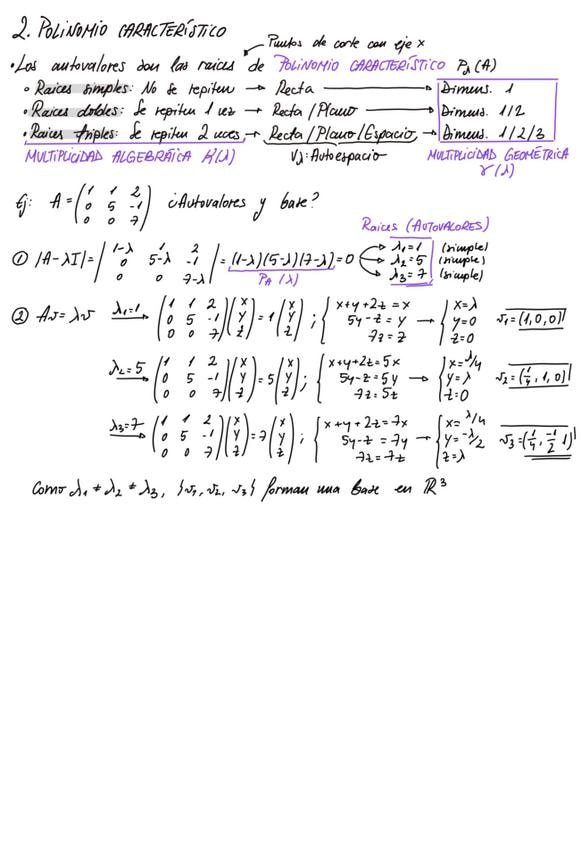 2. POLINOMIO CARACTERÍSTICO
Puntos de corte con eje x
• Los autovalores son las raices de POLINOMIO CARACTERÍSTICO P_λ(A)
◦ Raices simples: No se repiten → Recta → Dimens. 1
◦ Raices dobles: Se repiten 1 vez → Recta/Plano → Dimens. 1/2
• Raices triples: Se repiten 2 veces → Recta/Plano/Espacio → Dimens. 1/2/3
MULTIPLICIDAD ALGEBRÁTICA (λ) V_λ: Autoespacio MULTIPLICIDAD GEOMÉTRICA
γ(λ)
Ej: A = (1 1 2 / 0 5 -1 / 0 0 7) ¿Autovalores y base?
Raices (AUTOVALORES)
① |A-λI| = |1-λ 1 2 / 0 5-λ -1 / 0 0 7-λ| = (1-λ)(5-λ)(7-λ) = 0 → λ₁=1 (simple) λ₂=5 (simple) λ₃=7 (simple)
P_A(λ)
② Av = λv λ₁=1 → (1 1 2 / 0 5 -1 / 0 0 7)(x / y / z) = 1(x / y / z); {x+y+2z=x / 5y-z=y / 7z=z → {x=λ / y=0 / z=0 v₁=(1,0,0)
λ₂=5 → (1 1 2 / 0 5 -1 / 0 0 7)(x / y / z) = 5(x / y / z); {x+y+2z=5x / 5y-z=5y / 7z=5z → {x=λ/4 / y=λ / z=0 v₂=(1/4, 1, 0)
λ₃=7 → (1 1 2 / 0 5 -1 / 0 0 7)(x / y / z) = 7(x / y / z); {x+y+2z=7x / 5y-z=7y / 7z=7z → {x=λ/4 / y=-λ/2 / z=λ v₃=(1/4, -1/2, 1)
Como λ₁ ≠ λ₂ ≠ λ₃, {v₁, v₂, v₃} forman una base en ℝ³